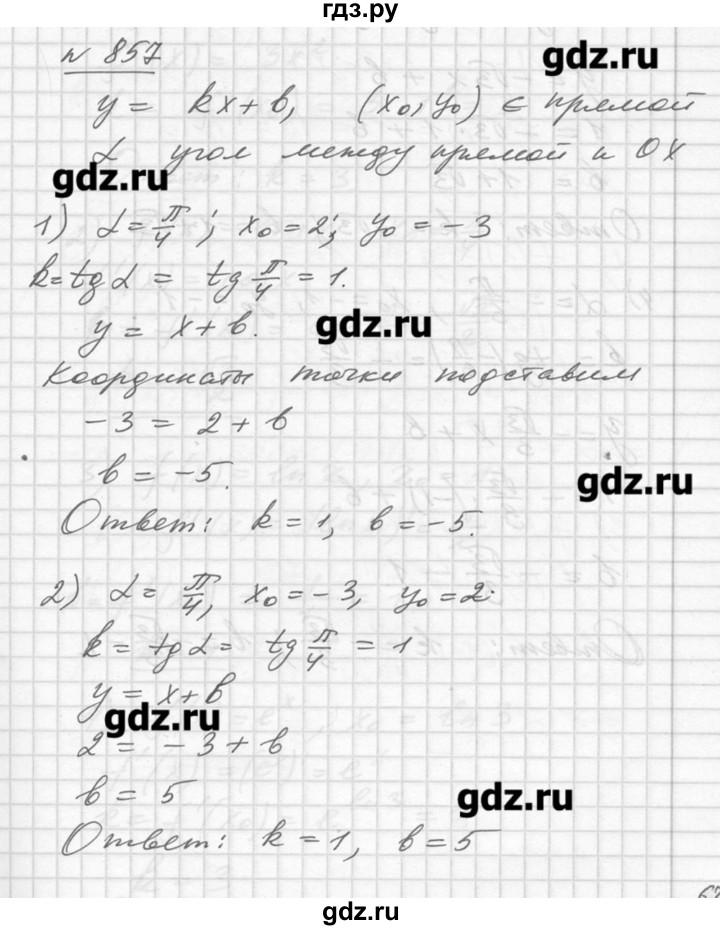 гдз.ру
n 857
gdz.ru
y = kx + b, (x₀, y₀) ∈ прямой
α угол между прямой и OX
gdz.ru
1) α = π/4; x₀ = 2; y₀ = -3
k = tg α = tg π/4 = 1.
y = x + b.
gdz.ru
Координаты точки подставим
-3 = 2 + b
b = -5.
gdz.ru
Ответ: k = 1, b = -5.
2) α = π/4, x₀ = -3, y₀ = 2.
k = tg α = tg π/4 = 1
y = x + b
gdz.ru
2 = -3 + b
b = 5
gdz.ru
Ответ: k = 1, b = 5
gdz.ru